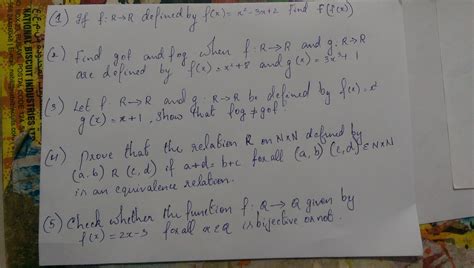 (1) If f: R→R defined by f(x) = x² - 3x+2 find f(f(x))
(2) Find gof and fog when f: R→R and g: R→R
are defined by f(x) = x²+8 and g(x) = 3x³+1
(3) Let f: R→R and g: R→R be defined by f(x) = x²
g(x) = x+1, show that fog ≠ gof
(4) Prove that the relation R on N×N defined by
(a,b) R (c,d) if a+d = b+c for all (a,b) (c,d) ∈ N×N
is an equivalence relation.
(5) Check whether the function f: Q→Q given by
f(x) = 2x-3 for all x∈Q is bijective or not.
NATIONAL BISCUIT INDUSTRIES LTD